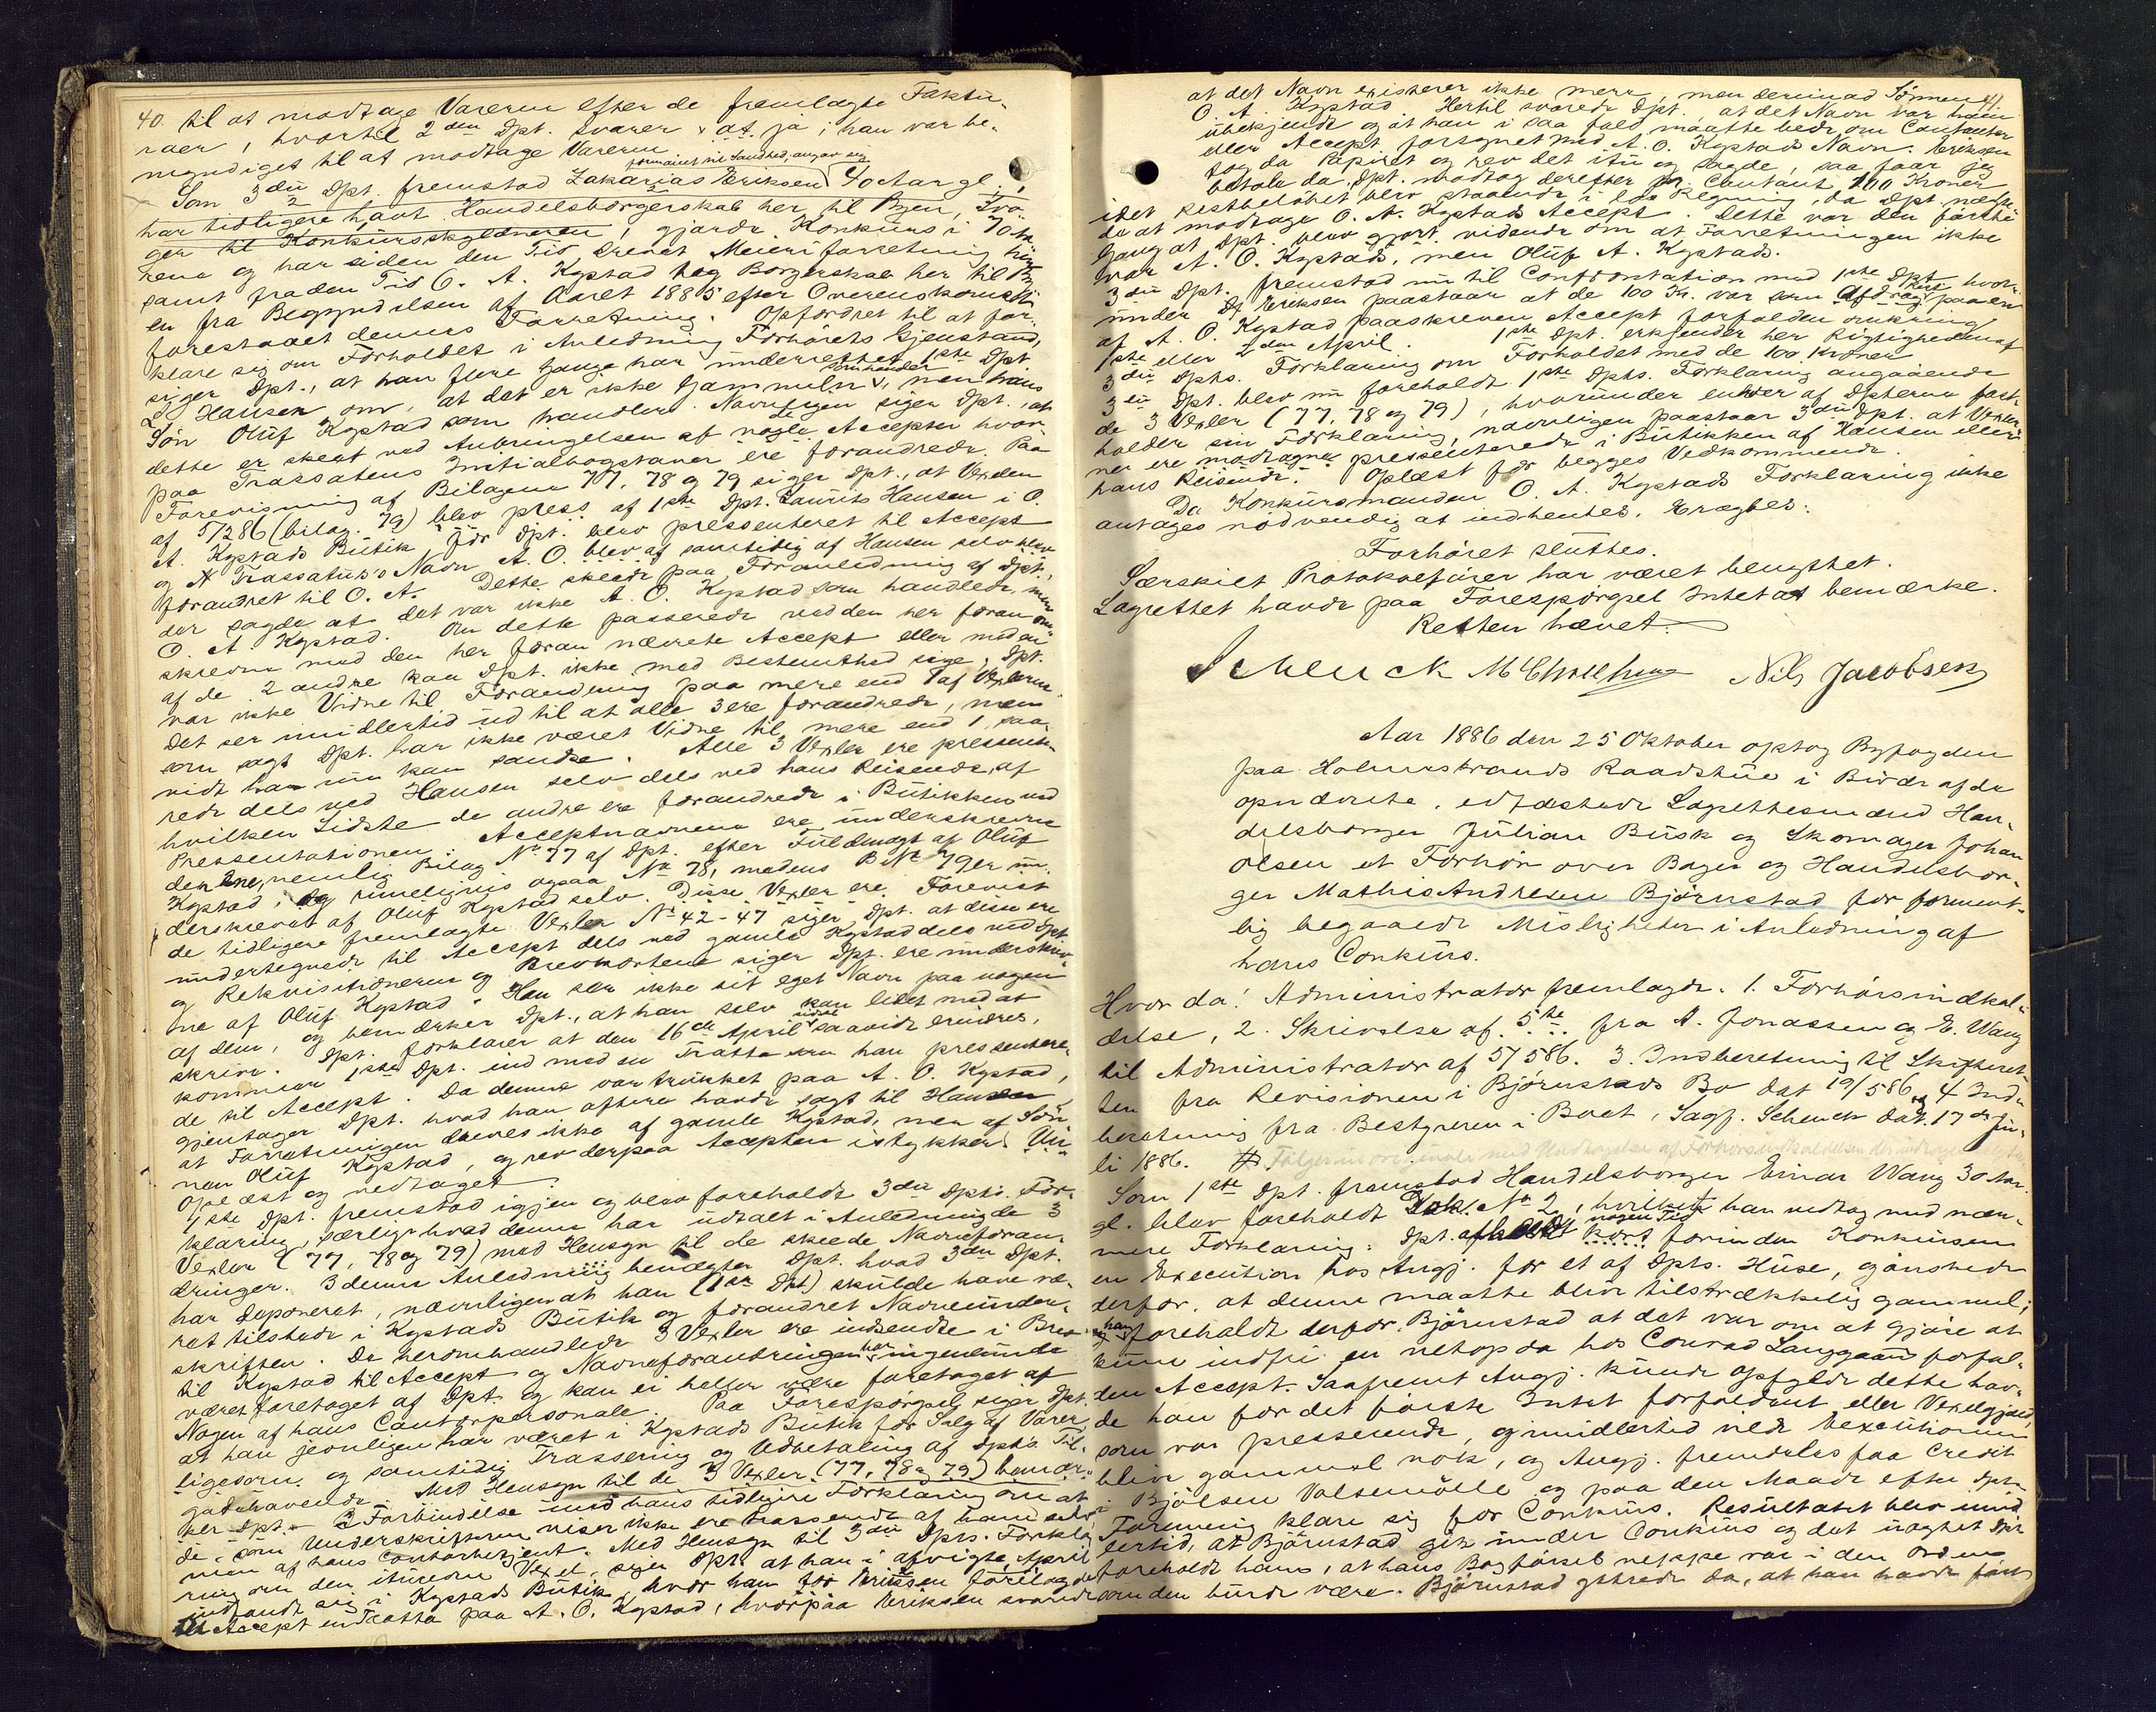 40. til at modtage Varerne efter de fremlagte Faktu-
raer, hvortil 2den Dpt. svarer, at ja; han var be-
myndiget til at modtage Varerne.
Som 3die Dpt. fremstod Zakarias Eriksen formanet til Sandhed, angav sig 40 Aar gl.,
har tidligere havt Handelsborgerskab her til Byen, Svo-
ger til Konkursskyldneren, gjorde Konkurs i
og har siden den Tid drevet Meieriforretning her
samt fra den Tid O. A. Kypstad tog Borgerskab her til By-
en fra Begyndelsen af Aaret 1885 efter Overenskomst
forestaaet dennes Forretning. Opfordret til at for-
klare sig om Forholdet i Anledning Forhørets Gjenstand,
siger Dpt., at han flere Gange har underrettet 1ste Dpt.
L. Hansen om, at det er ikke Gammelen som handler, men hans
Søn Oluf Kypstad som handler. Navnligen siger Dpt., at
dette er skeet ved Anbringelsen af nogle Accepter hvor-
paa Trassatens Initialbogstaver ere forandrede. Paa
Forevisning af Bilagene 77, 78 og 79 siger Dpt., at Vexlen
af 5/2 86 (bilag. 79) blev press. af 1ste Dpt. Laurits Hansen i O.
A. Kypstads Butik for Dpt. blev pressenteret til Accept
og Trassatus's Navn A. O. blev af samtidig af Hansen selv blev
forandret til O. A. Dette skeede paa Foranledning af Dpt.,
der sagde at det var ikke A. O. Kypstad som handlede, men
O. A. Kypstad. Om dette passerede ved den her foran om-
skrevne med den her foran nævnte Accept eller med en
af de 2 andre kan Dpt. ikke med Bestemthed sige, Dpt.
var ikke Vidne til Forandring paa mere end 1 af Vexlerne.
Det ser imidlertid ud til at alle 3 ere forandrede, men
som sagt Dpt. har ikke været Vidne til mere end 1, saa-
vidt han nu kan sandse. Alle 3 Vexler ere pressente-
rede dels ved Hansen selv dels ved hans Reisende, af
hvilken Sidste de andre ere forandrede i Butikken ved
Pressentationen. Acceptnavnene ere underskrevne
den Ene, nemlig Bilag No 77 af Dpt. efter Fuldmagt af Oluf
Kypstad, og rimeligvis ogsaa No 78, medens B No 79 er un-
derskrevet af Oluf Kypstad selv. Disse Vexler ere Forevist
de tidligere fremlagte Vexler No 42-47 siger Dpt. at disse ere
undertegnede til Accept dels ved gamle Kypstad dels ved Dpt.
og Rekvisitionerne og Brevkortene siger Dpt. ere underskriv-
ne af Oluf Kypstad. Han ser ikke sit eget Navn paa nogen
af dem, og bemærker Dpt., at han selv kan lidet med at
skrive. Dpt. forklarer at den 16de April sidstl. saavidt erindres,
kommer 1ste Dpt. ind med en Tratta som han pressentere-
de til Accept. Da denne var trukket paa A. O. Kypstad,
gjentager Dpt. hvad han oftere havde sagt til Hansen
at Forretningen dreves ikke af gamle Kypstad, men af Søn-
nen Oluf Kypstad, og rev derpaa Accepten istykker.
Oplæst og vedtaget.
1ste Dpt. fremstod igjen og blev foreholdt 3die Dpts. For-
klaring, særlig hvad denne har udtalt i Anledning de 3
Vexler (77, 78 og 79) med Hensyn til de skeede Navneforan-
dringer. I denne Anledning benægter Dpt. hvad 3die Dpt.
har deponeret, navnligen at han (1ste Dpt) skulde have væ-
ret tilstede i Kypstads Butik og forandret Navneunder-
skriften. De heromhandlede 3 Vexler ere indsendte i Brev
til Kypstad til Accept og Navneforandringen har ingenlunde
været foretaget af Dpt. og kan ei heller være foretaget af
Nogen af hans Contorpersonale. Paa Forespørgsel siger Dpt.
at han jevnligen har været i Kypstads Butik for Salg af Varer,
ligesom og samtidig Trassering og Udbetaling af Dpts. Til-
godehavende. Med Hensyn til de 3 Vexler (77, 78 og 79) bemær-
ker Dpt. i Forbindelse med hans tidligere Forklaring om at
de som Underskrifterne viser ikke ere trasserede af ham selv
men af hans Contorbetjent. Med Hensyn til 3die Dpts. Forkla-
ring om den iturevne Vexel, siger Dpt. at han i afvigte April
indfandt sig i Kypstads Butik, hvor han for Eriksen forelagde
til Accept en Tratta paa A. O. Kypstad, hvorpaa Eriksen svarede
41.
at det Navn existerer ikke mere, men derimod Sønnen
O. A. Kypstad. Hertil svarede Dpt., at det Navn var ham
ubekjendt og at han i saa fald maatte bede om Contanter
eller Accept forsynet med A. O. Kypstads Navn. Eriksen
tog da Papiret og rev det itu og sagde, saa faar jeg
betale da, Dpt. modtog derefter pr. Contant 100 Kroner
idet Restbeløbet blev staaende i løs Regning, da Dpt. nægte-
de at modtage O. A. Kypstads Accept. Dette var den første
Gang at Dpt. blev gjort vidende om at Forretningen ikke
var A. O. Kypstads, men Oluf A. Kypstads.
3die Dpt. fremstod nu til Confrontation med 1ste Dpt hvor-
under Eriksen paastaar at de 100 Kr. var som Afdrag paa en
af A. O. Kypstad paaskreven Accept forfalden omkring
1ste eller 2den April. 1ste Dpt. erkjender her Rigtigheden af
3die Dpts. Forklaring om Forholdet med de 100. Kroner
3die Dpt. blev nu foreholdt 1ste Dpts. Forklaring angaaende
de 3 Vexler (77, 78 og 79), hvorunder enhver af Dpterne fast-
holder sin Forklaring, navnligen paastaar 3die Dpt. at Vexler-
ne ere modtagne pressenterede i Butikken af Hansen eller
hans Reisende. Oplæst for begges Vedkommende.
Da Konkursmanden O. A. Kypstads Forklaring ikke
antages nødvendig at indhentes. Eragtes:
Forhøret sluttes.
Særskilt Protokolfører har været benyttet.
Lagrettet havde paa Forespørgsel Intet at bemærke.
Retten hævet.
Schenck Nils Jacobsen
Aar 1886 den 25 Oktober optog Byfogden
paa Holmestrands Raadstue i Bivær af de
opnævnte, edfæstede Lagrettesmænd Han-
delsborger Julian Busk og Skomager Johan
Olsen et Forhør over Bager og Handelsbor-
ger Mathis Andresen Bjørnstad for forment-
lig begaaede Misligheter i Anledning af
hans Conkurs.
Hvor da! Administrator fremlagde. 1. Forhørsindkal-
delse, 2. Skrivelse af 5te fra A. Jonassen og E. Wang
til Administrator af 5/5 86. 3. Indberetning til Skifteret-
ten fra Revisionen i Bjørnstads Bo dat 19/5 86, og 4 Ind-
beretning fra Bestyreren i Boet, Sagf. Schenck dat. 17de Ju-
li 1886. Følger in originale med Undtagelse af Forhørsindkaldelsen der indtages
Som 1ste Dpt. fremstod Handelsborger Einar Wang 30 Aar
gl. blev foreholdt Dok. No 2, hvilken han vedtog med nær-
mere Forklaring: Dpt. afholdt nogen Tid forinden Konkursen
en Execution hos Angj. for et af Dpts. Huse, og ønskede
derfor, at denne maatte blive tilstrækkelig gammel;
han foreholdt derfor Bjørnstad at det var om at gjøre at
kunne indfri en netop da hos Conrad Langgaard forfal-
den Accept. Saafremt Angj. kunde opfylde dette hav-
de han for det første Intet forfaldent eller Vexelgjæld,
som var presserende, og imidlertid vilde Executionen
blive gammel nok, og Angj. fremdeles faa Credit
i Bjølsen Valsemølle og paa den Maade efter Dpts.
Formening klare sig for Conkurs. Resultatet blev imid-
lertid, at Bjørnstad gik under Conkurs og det uagtet Dpt
foreholdt hans, at hans Bogførsel neppe var i den Orden
som den burde være. Bjørnstad ytrede da, at han havde ført